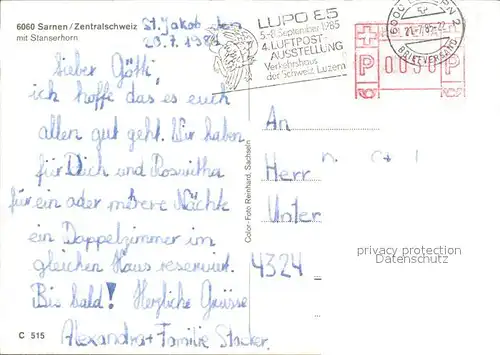 6060 Sarnen / Zentralschweiz
mit Stanserhorn
St. Jakob den
20.7.198
LUPO 85
5.-8. September 1985
4. LUFTPOST-
AUSSTELLUNG
Verkehrshaus
der Schweiz, Luzern
6000 2
21.-7.85-22
BRIEFVERSAND
P 0050 P
Lieber Götti,
ich hoffe das es euch
allen gut geht. Wir haben
für Dich und Roswitha
für ein oder mehere Nächte
ein Doppelzimmer im
gleichen Haus reserviert.
Bis bald! Herzliche Grüsse
Alexandra + Familie
C 515
Color-Foto Reinhard, Sachseln
An
Herr
Unter
4324
privacy protection
Datenschutz